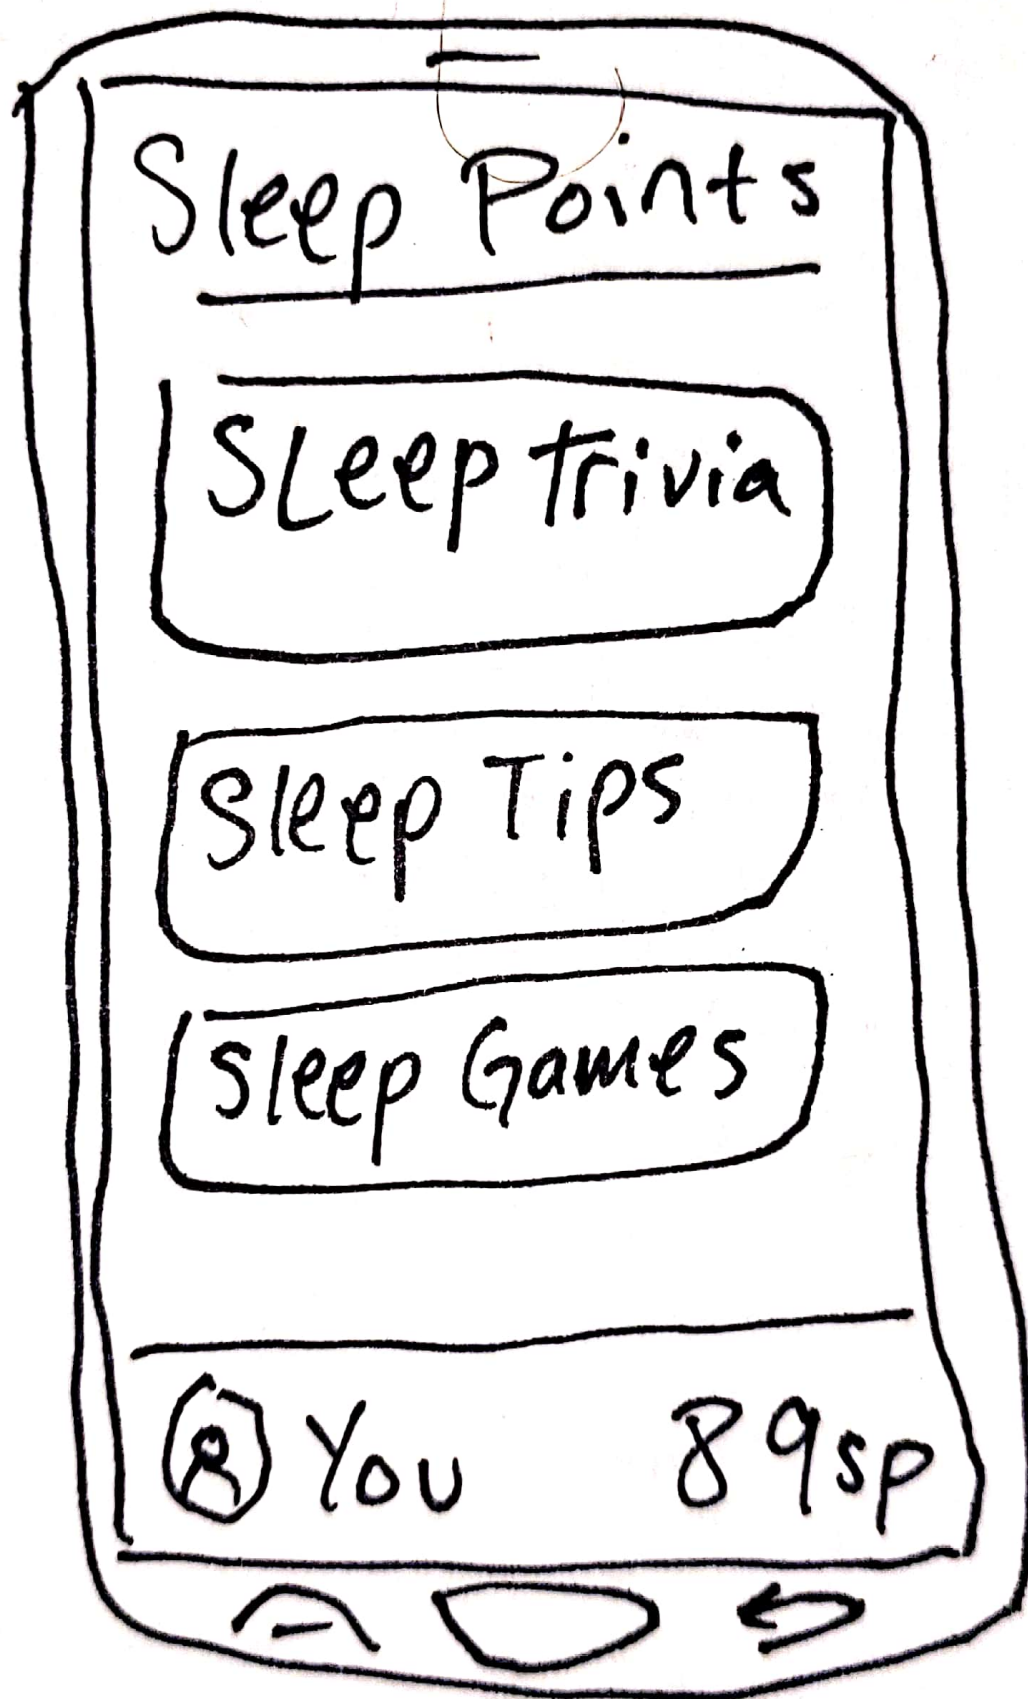 Sleep Points
Sleep trivia
Sleep Tips
Sleep Games
You 89sp